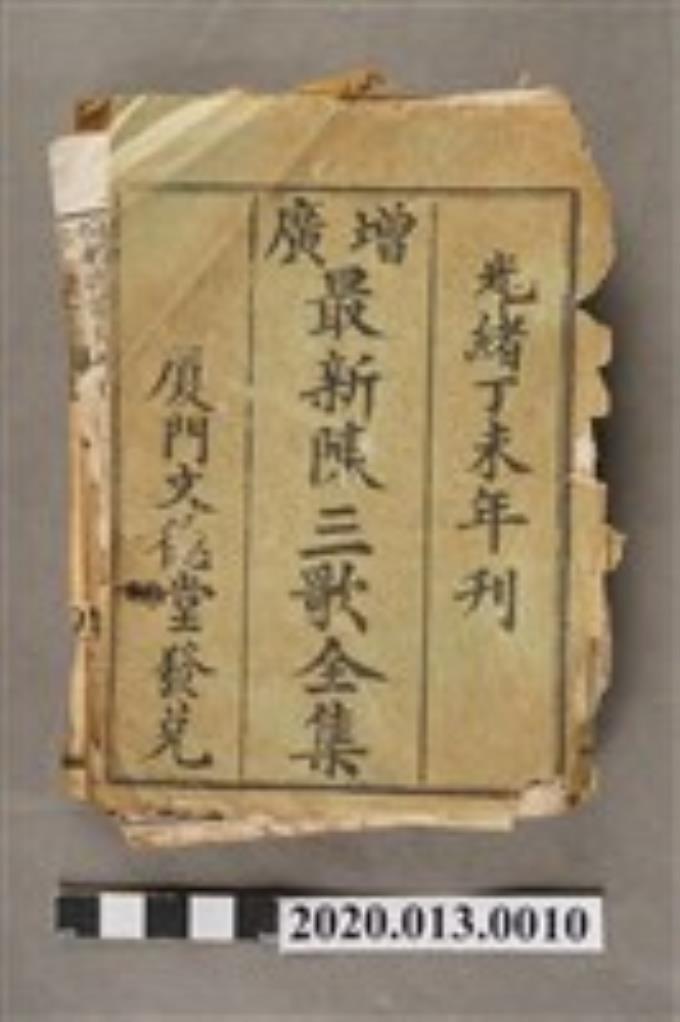 光緒丁未年刊
增廣
最新陳三歌全集
廈門文德堂發兌
2020.013.0010